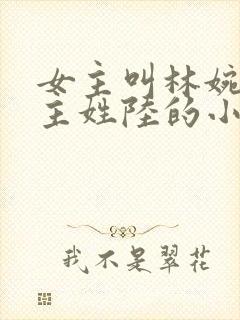 女主叫林婉
主姓陸的小
我不是翠花